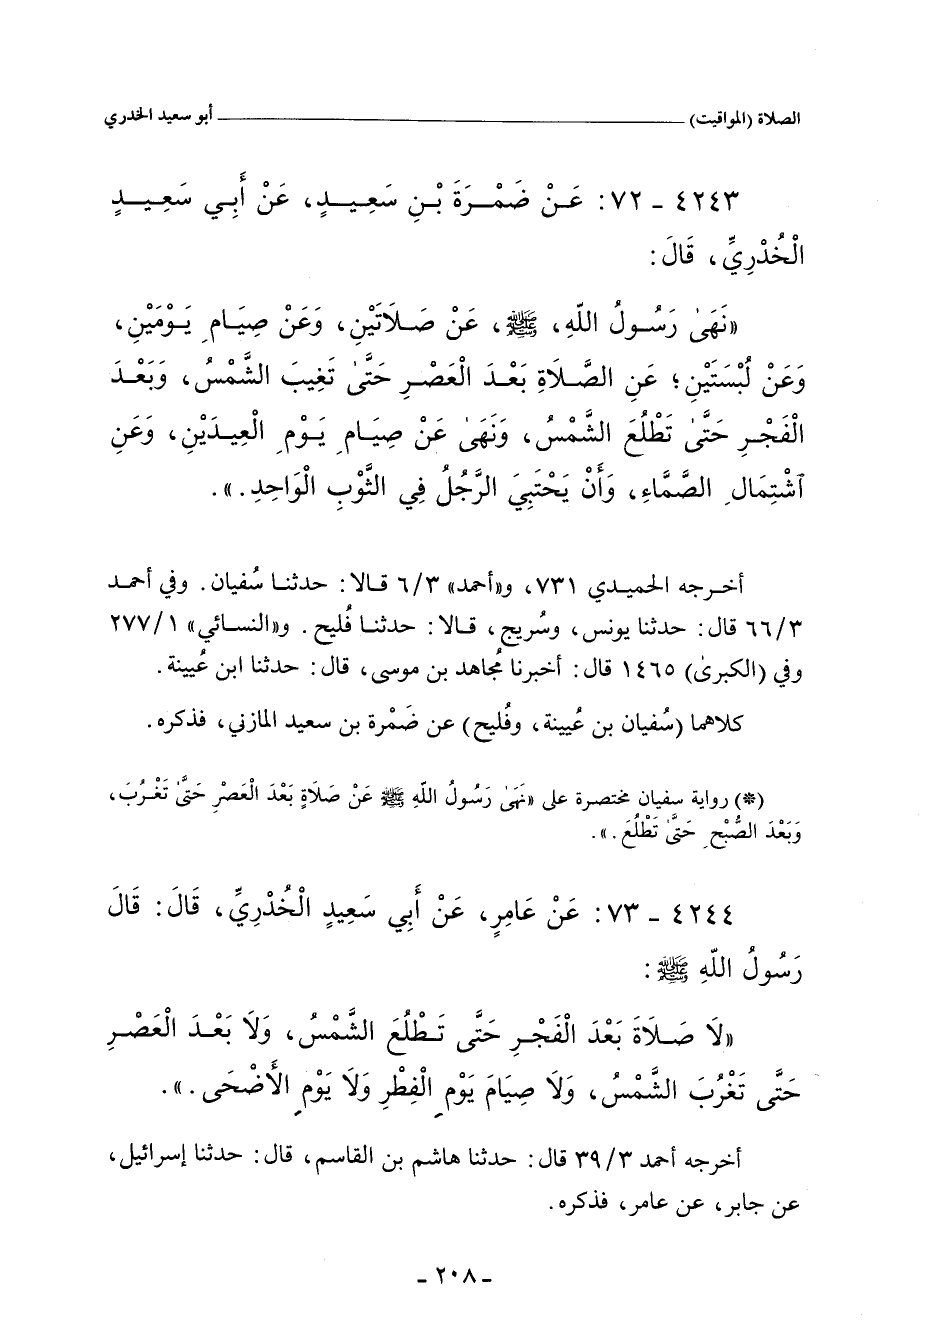 الصلاة (المواقيت) ــــــــــــــــــــ أبو سعيد الخدري
٤٢٤٣ ـ ٧٢: عَـنْ ضَمْـرَةَ بْـنِ سَعِيـدٍ، عَنْ أَبِـي سَعِيـدٍ
الْخُدْرِيِّ، قَالَ:
«نَهَىٰ رَسُـولُ اللّهِ، ﷺ، عَنْ صَـلَاتَيْنِ، وَعَنْ صِيَـامِ يَـوْمَيْنِ،
وَعَنْ لُبْسَتَيْنِ؛ عَنِ الصَّـلَاةِ بَعْدَ الْعَصْـرِ حَتَّىٰ تَغِيبَ الشَّمْسُ، وَبَعْـدَ
الْفَجْـرِ حَتَّىٰ تَطْلُعَ الشَّمْسُ، وَنَهَىٰ عَنْ صِيَـامِ يَـوْمِ الْعِيـدَيْنِ، وَعَنِ
ٱشْتِمَالِ الصَّمَّاءِ، وَأَنْ يَحْتَبِيَ الرَّجُلُ فِي الثَّوْبِ الْوَاحِدِ.».
أخـرجه الحميـدي ٧٣١، و«أحمد» ٦/٣ قـالا: حدثنـا سُفيان. وفي أحمـد
٦٦/٣ قال: حدثنا يونس، وسُريج، قـالا: حدثنـا فُليح. و«النسـائي» ٢٧٧/١
وفي (الكبرىٰ) ١٤٦٥ قال: أخبرنا مُجاهد بن موسى، قال: حدثنا ابن عُيينة.
كلاهما (سُفيان بن عُيينة، وفُليح) عن ضَمْرة بن سعيد المازني، فذكره.
(*) رواية سفيان مختصرة على «نَهَىٰ رَسُولُ اللّهِ ﷺ عَنْ صَلَاةٍ بَعْدَ الْعَصْرِ حَتَّىٰ تَغْـرُبَ،
وَبَعْدَ الصُّبْحِ حَتَّىٰ تَطْلُعَ.».
٤٢٤٤ ـ ٧٣: عَنْ عَامِرٍ، عَنْ أَبِي سَعِيدٍ الْخُدْرِيِّ، قَالَ: قَالَ
رَسُولُ اللّهِ ﷺ:
«لَا صَـلَاةَ بَعْدَ الْفَجْـرِ حَتَّى تَـطْلُعَ الشَّمْسُ، وَلَا بَعْـدَ الْعَصْـرِ
حَتَّى تَغْرُبَ الشَّمْسُ، وَلَا صِيَامَ يَوْمِ الْفِطْرِ وَلَا يَوْمِ الأَضْحَى.».
أخرجه أحمد ٣٩/٣ قال: حدثنا هاشم بن القاسم، قال: حدثنا إسرائيل،
عن جابر، عن عامر، فذكره.
ـ ٢٠٨ ـ